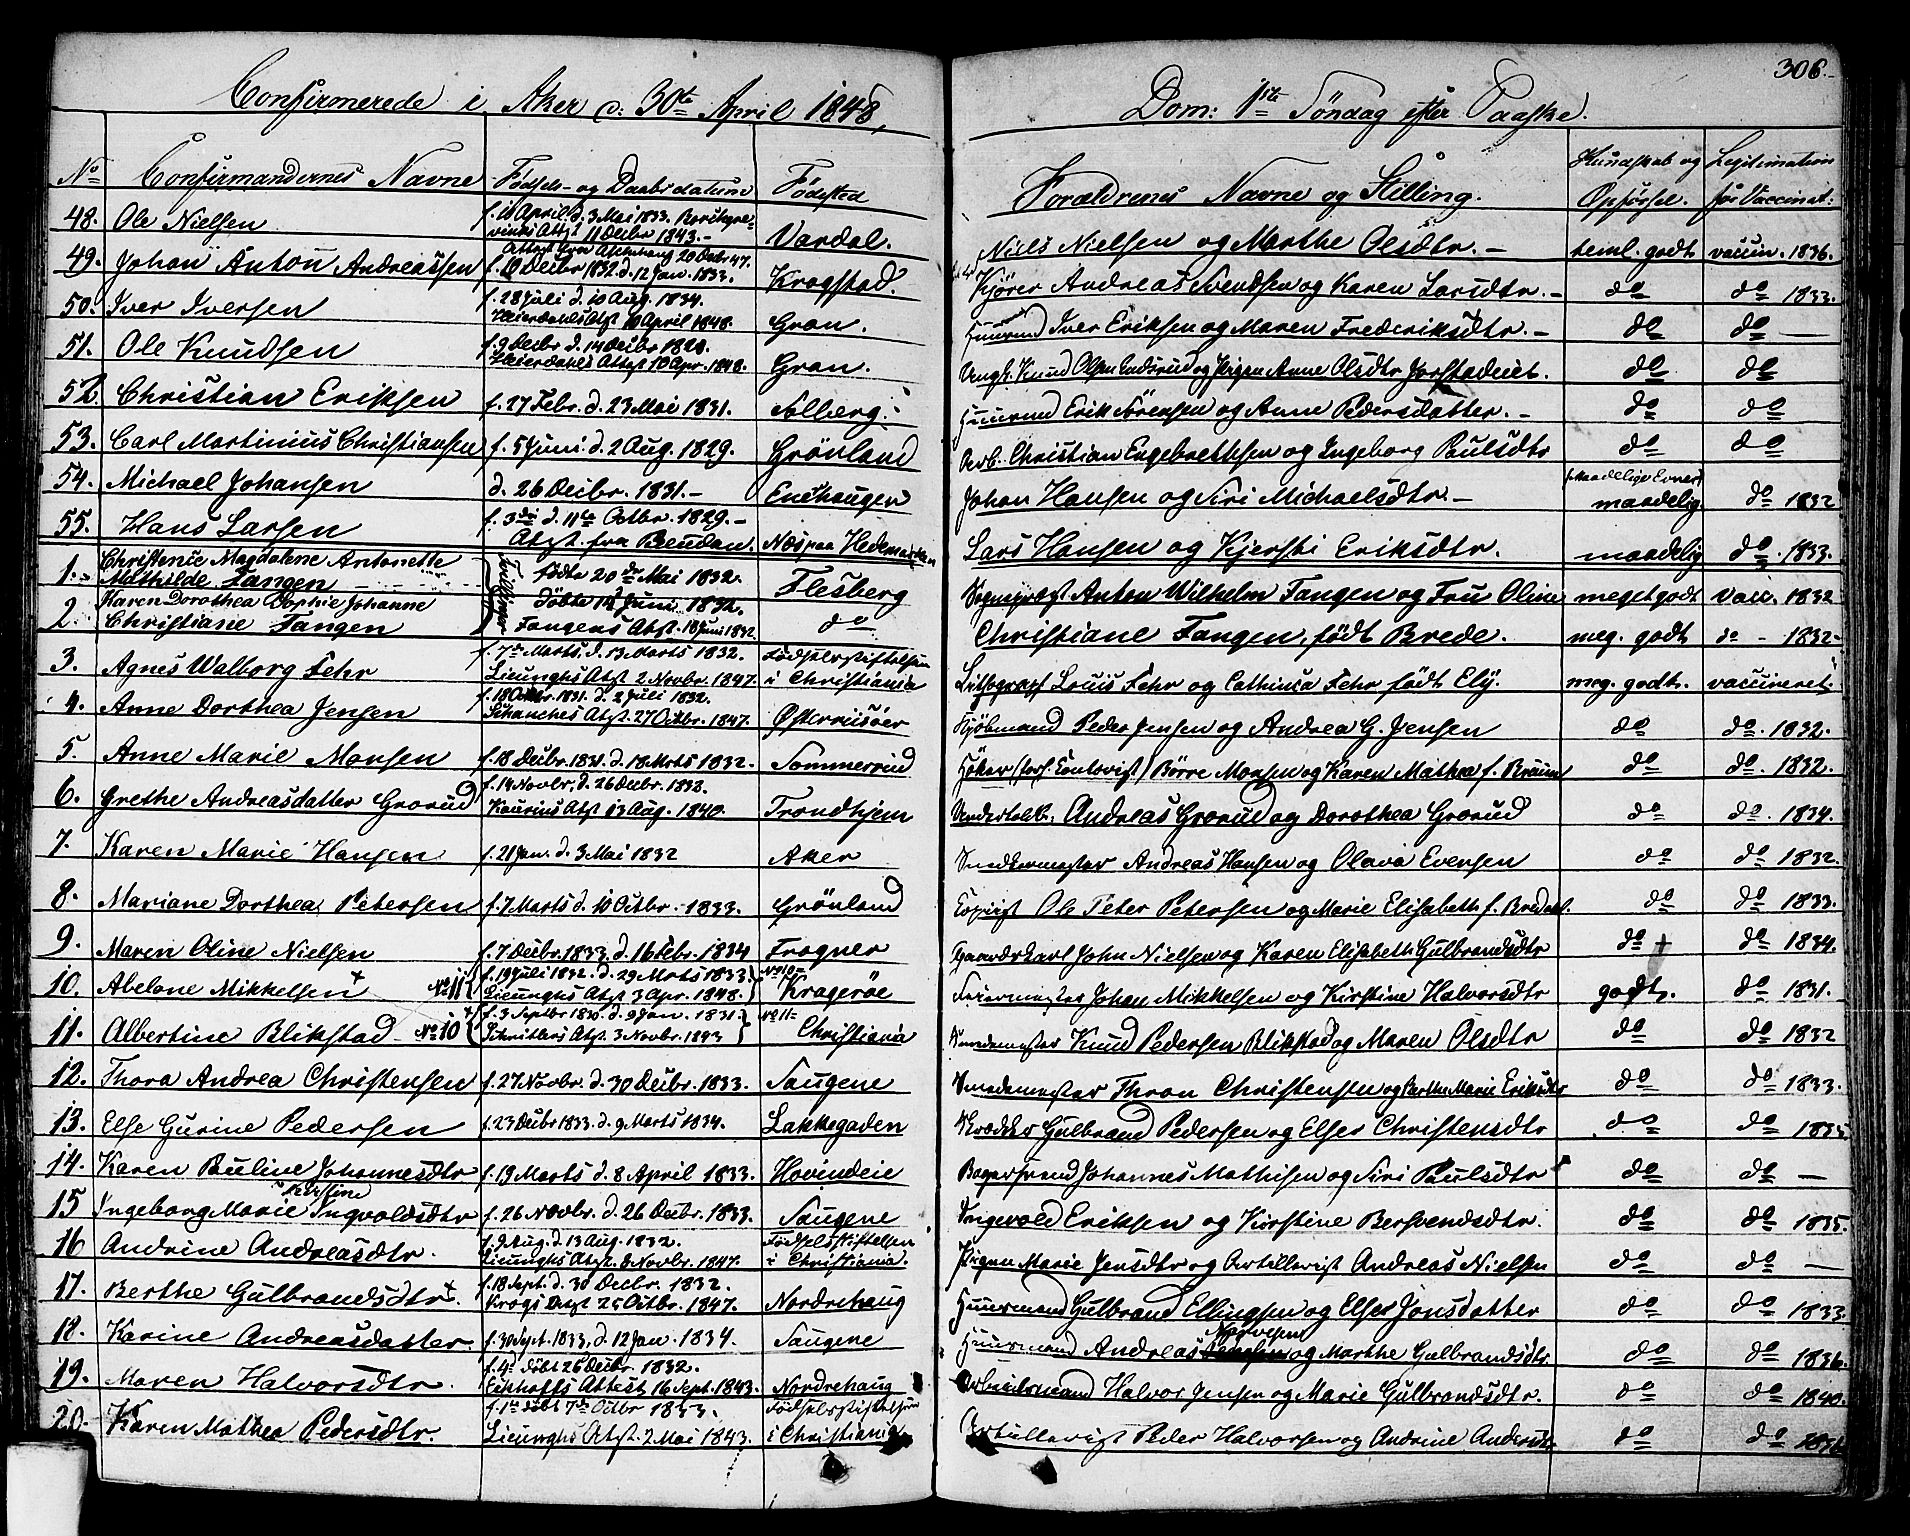 306.
Confirmerede i Aker d: 30te April 1848, Dom: 1ste Söndag efter Paaske.
No Confirmandernes Navne Födsels- og Daabsdatum Födested Forældrenes Navne og Stilling. Kundskab og Opförsel. Legitimation for Vaccinat:
48. Ole Nielsen f. 10 April d. 3 Mai 1833. Attst 11 Decbr 1843.- Vardal. Niels Nielsen og Marthe Olsdtr.- teml. godt vaccin. 1836.
49. Johan Anton Andreassen Attest fra 20 Decbr 47. f. 10 Decbr 1832 d. 12 Jan. 1833. Krogstad. Kjörer Andreas Svendsen og Karen Larsdtr.- do do 1833.
50. Iver Iversen f. 28 Juli d. 10 Aug. 1834. Heierdahls Atst 10 April 1848. Gran. Huusmand Iver Eriksen og Maren Frederiksdtr.- do do —
51. Ole Knudsen f. 9 Decbr d. 14 Decbr 1828. Heierdahls Attst 10 Apr. 1848. Gran. Ungk. Knud Olsen og Pigen Anne Olsdtr do do
52. Christian Eriksen f. 27 Febr. d. 23 Mai 1831. Solberg. Huusmand Erik Sörensen og Anne Pedersdatter.- do do
53. Carl Martinius Christiansen f. 5 Juni d. 2 Aug. 1829. Grönland Arb. Christian Engebrethsen og Ingeborg Paulsdtr do do
54. Michael Johansen d. 26 Decbr. 1831.- Enehaugen Johan Hansen og Siri Michaelsdtr.- (maadelige Evner) maadelig do 1832
55. Hans Larsen f. 3die d. 11te Octbr. 1829.- Atst. fra Næs paa Hedemarken Lars Hansen og Kjersti Eriksdtr. maadelig do 1833.
1. Christence Magdalene Antonette Mathilde Tangen Tvillinger födte 20de Mai 1832. Flesberg Sognepræst Anton Wilhelm Tangen og Fru Oline meget godt vacc. 1832
2. Karen Dorothea Sophie Johanne Christiane Tangen döbte 14 Juni 1832. Tangens Atst. 18 Juni 1832 do Christiane Tangen, födt Brede. meg. godt do - 1832-
3. Agnes Walborg Fehr f. 7de Marts d. 13 Marts 1832. Lieunghs Atst 2 Novbr. 1847. Födselsstiftelsen i Christiania Lithograph Louis Fehr og Cathinca Fehr födt Ely. meg. godt. vaccineret.
4. Anne Dorthea Jensen f. 18 Octbr. 1831. d. 2 Juli 1832. Schanches Atst. 27 Octbr. 1847. Østerriisöer Kjöbmand Peder Jensen og Andrea G. Jensen do do 1832.
5. Anne Marie Monsen f. 18 Decbr. 1831. d. 18 Marts 1832. Sommerrud Höker Börre Monsen og Karen Mathea f. Bruun do do 1832.
6. Grethe Andreasdatter Grorud f. 14 Novbr, d. 26 Decbr. 1832. Kaurins Atst 13 Aug. 1840. Trondhjem Andreas Grorud og Dorothea Grorud do do 1834.
7. Karen Marie Hansen f. 21 Jan. d. 3 Mai 1832 Aker Snedkermester Andreas Hansen og Olava Evensen do do 1832.
8. Mariane Dorthea Petersen f. 7 Marts d. 10 Octbr. 1833. Grönland Copiist Ole Peter Petersen og Marie Elisabeth f. Bredahl. do do 1833.
9. Maren Oline Nielsen f. 7 Decbr. 1833 d. 16 Febr. 1834 Frogner Gaardskarl John Nielsen og Karen Elisabeth Gulbrandsdtr do + do 1834.
10. Abelone Mikkelsen + No 11 f. 19 Juli 1832. d. 29 Marts 1833. Lieunghs Atst 3 Apr. 1848. No 10- Krageröe Feiermester Johan Mikkelsen og Kirstine Halvorsdtr godt. do 1831.
11. Albertine Blikstad No 10 + f. 3 Septbr 1830. d. 9 Jan. 1831. Atst. 3 Novbr. 1843 No 11- Christiania Knud Pedersen Blikstad og Maren Olsdtr do do 1832
12. Thora Andrea Christensen f. 27 Novbr. d. 30 Decbr. 1833. Saugene Smedemester Thron Christensen og Berthe Marie Eriksdtr do do 1833.
13. Else Gurine Pedersen f. 23 Decbr 1833. d. 9 Marts 1834. Lakkegaden Skrædder Gulbrand Pedersen og Else Christensdtr do do 1835
14. Karen Pauline Johannesdtr f. 19 Marts d. 8 April 1833. Hovindeie Bagersvend Johannes Mathisen og Siri Paulsdtr do do —
15 Ingeborg Marie Kirstine Ingvoldsdtr f. 26 Novbr. d. 26 Decbr. 1833. Saugene Ingevold Eriksen og Kirstine Bersvendsdtr. do do 1835.
16 Andrine Andreasdtr. f. 9 Aug. d. 13 Aug. 1832. Lieunghs Atst. 8 Novbr. 1847. Födselsstiftelsen i Christiania. Pigen Marie Jensdtr og Artillerist Andreas Nielsen do do —
17. Berthe Gulbrandsdtr +. f. 18 Sept. d. 30 Decbr. 1832. Krogs Atst 25 Octbr. 1847. Nordrehaug Huusmand Gulbrand Ellingsen og Else Jonsdatter do do 1833
18. Karine Andreasdatter. f. 30 Sept. 1833. d. 12 Jan. 1834. Saugene Huusmand Andreas Narvesen og Marthe Gulbrandsdtr. do do 1836.
19. Maren Halvorsdtr. f. 4de döbt 26 Decbr. 1832. Eckhoffs Attest 16 Sept. 1843. Nordrehaug Arbeidsmand Halvor Jensen og Marie Gulbrandsdtr. do do 1840.
20. Karen Mathea Pedersdtr. f. 1ste döbt 7de Octbr 1833. Lieunghs Atst. 2 Mai 1843. Födselsstiftelsen i Christiania Artillerist Peder Halvorsen og Andrine Andersdtr do do